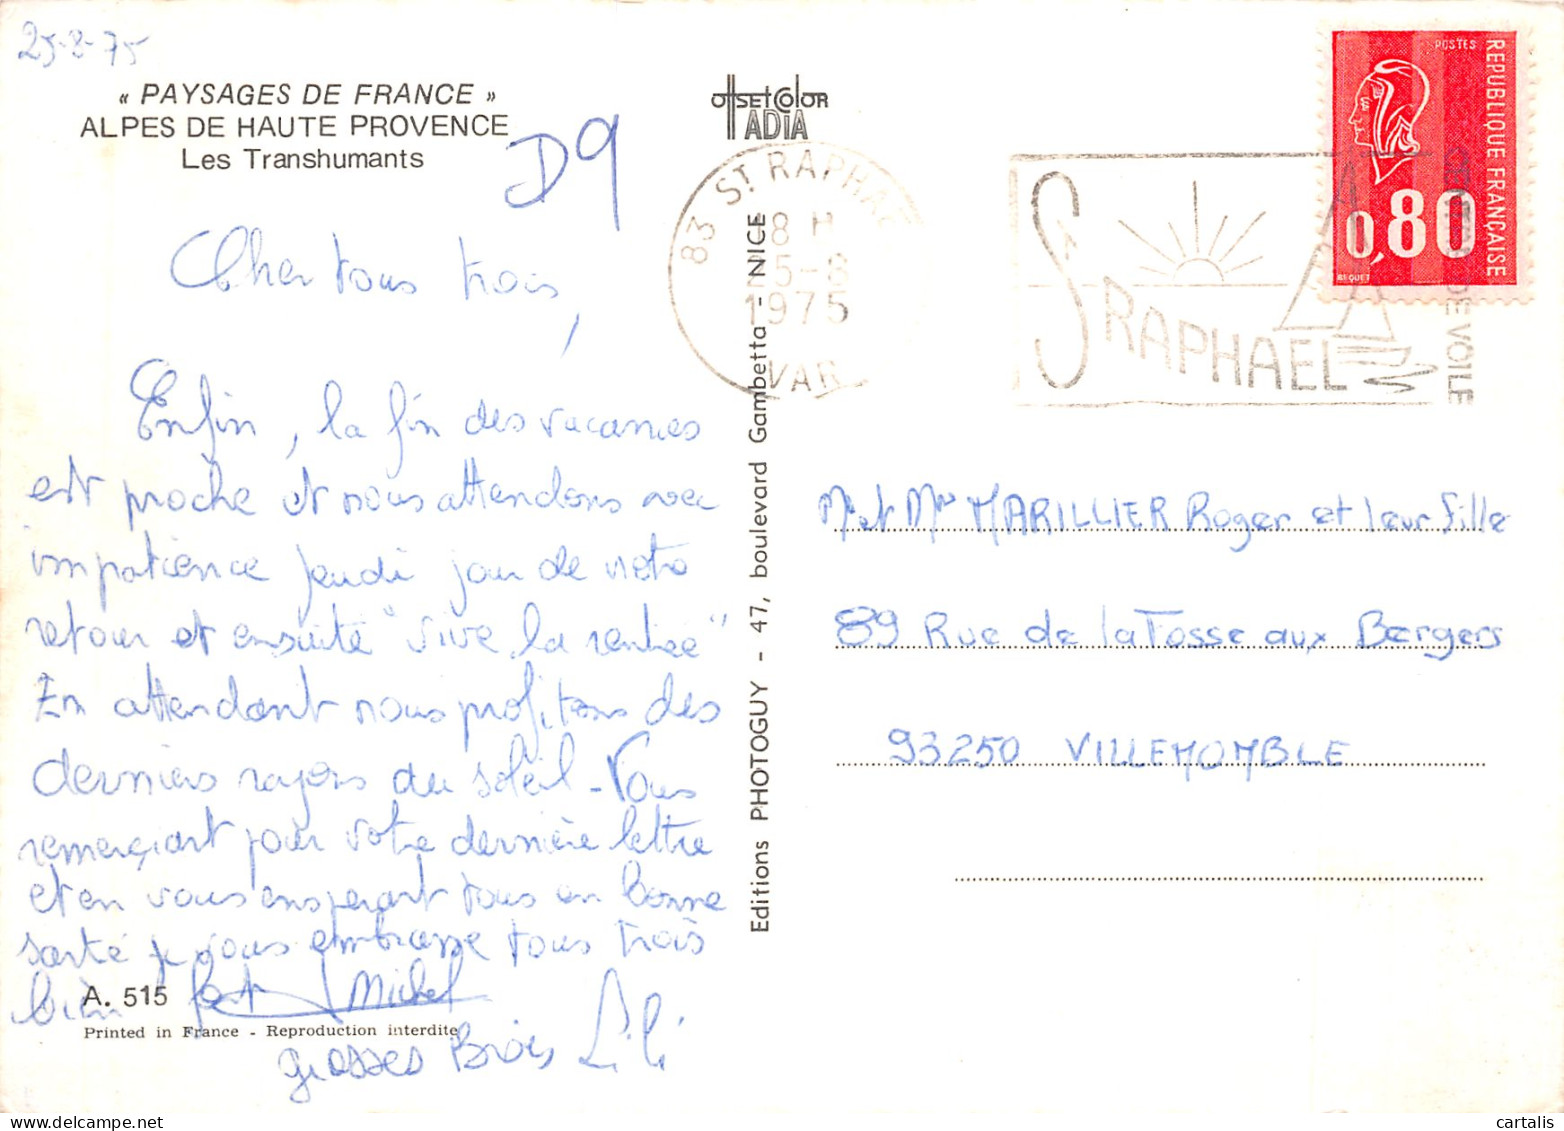 25-8-75
« PAYSAGES DE FRANCE »
ALPES DE HAUTE PROVENCE
Les Transhumants
D9
Cher tous trois,
Enfin, la fin des vacances
est proche et nous attendons avec
impatience jeudi jour de notre
retour et ensuite "vive la rentrée"
En attendant nous profitons des
derniers rayons du soleil - Vous
remerçiant pour votre dernière lettre
et en vous espérant tous en bonne
santé je vous embrasse tous trois
bien fort Michel
grosses Bises Lili
A. 515
Printed in France - Reproduction interdite
OFFSETCOLOR
ADIA
Editions PHOTOGUY - 47, boulevard Gambetta - NICE
83 ST RAPHAE
18 H
25-8
1975
VAR
ST RAPHAEL
DE VOILE
POSTES
REPUBLIQUE FRANÇAISE
0,80
BEQUET
Mr et Mme MARILLIER Roger et leur fille
89 Rue de la Fosse aux Bergers
93250 VILLEMOMBLE
cartalis